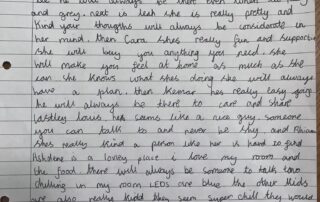 he will always be there even when
and grey. next is leah she is really pretty and
kind your thoughts will always be considerate in
her mind. then Cara. shes really fun and supportive
she will buy you anything you need. she
will make you feel at home as much as she
can she knows what shes doing she will always
have a plan. then Kemar hes really easy going
he will always be there to care and share
lastley louis. hes seems like a nice guy. someone
you can talk to and never be shy and
shes really kind a person like her is hard to find
Ashdene is a lovley place i love my room and
the food there will always be someone to talk too
chilling in my room LEDs are blue the other kids
are also really kind they seem super chill they would